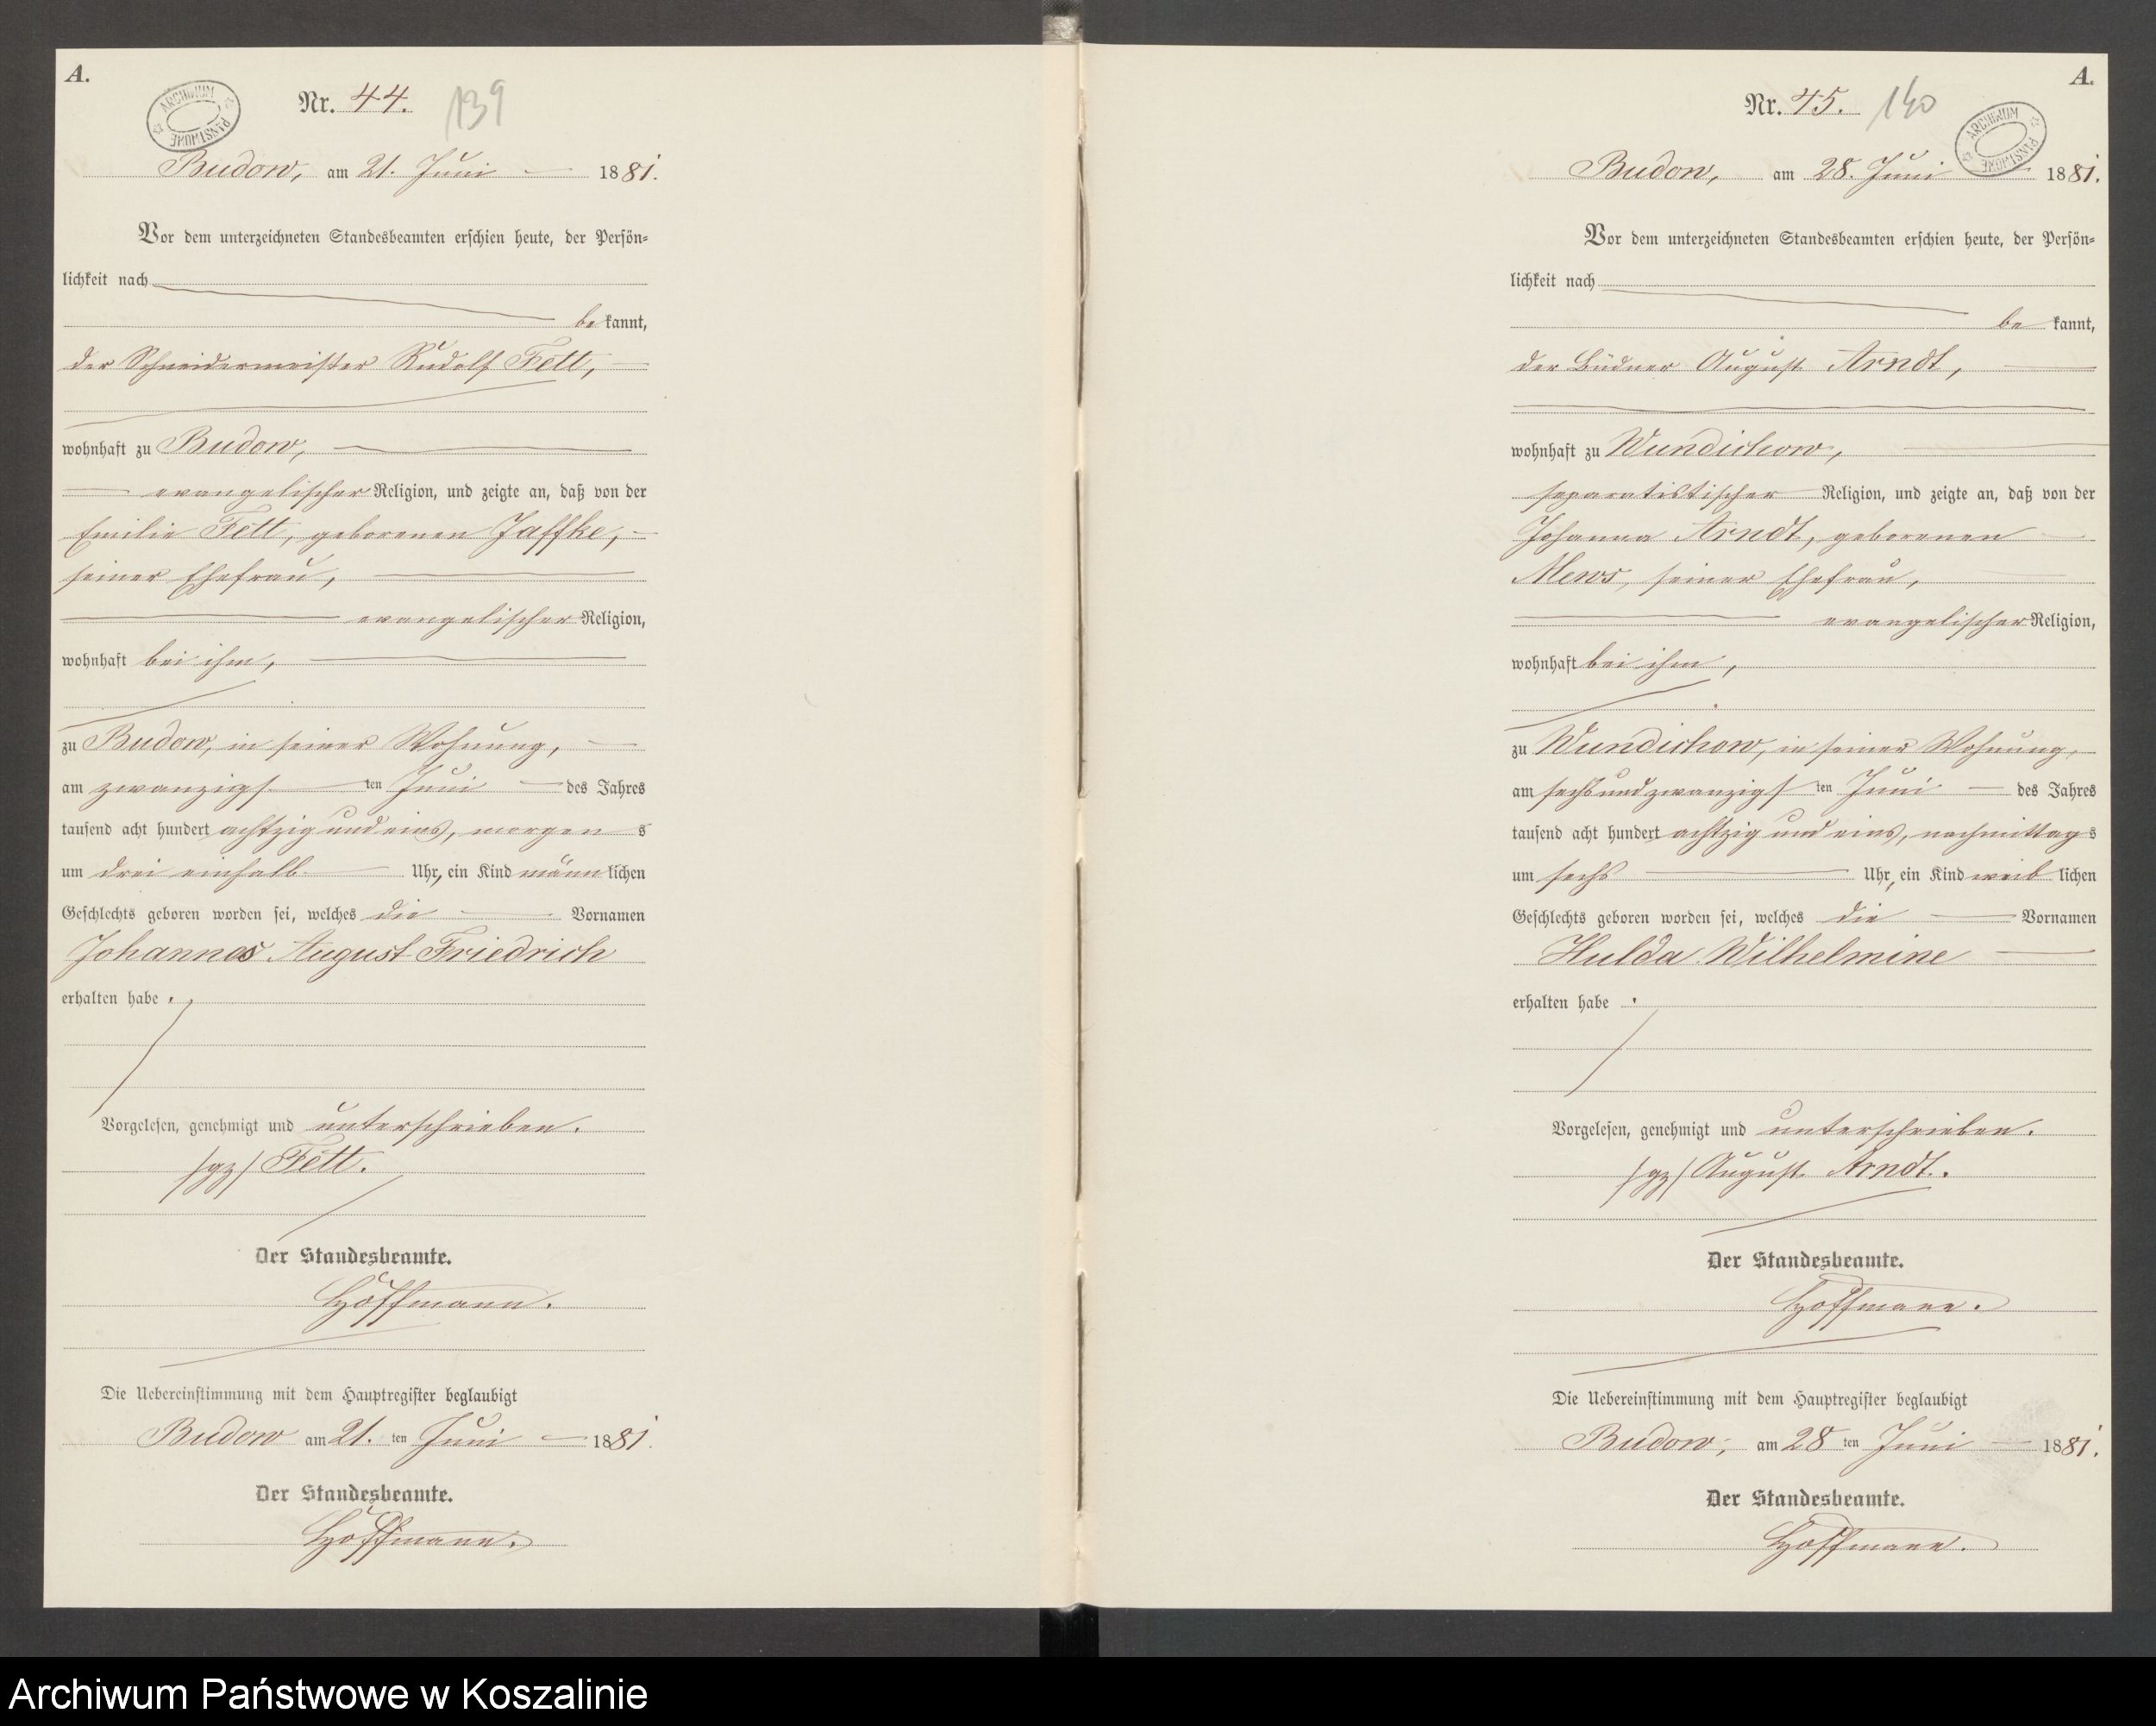 A.
ARCHIWUM PAŃSTWOWE
Nr. 44. 139
Budow, am 21. Juni 1881.
Vor dem unterzeichneten Standesbeamten erschien heute, der Persön=
lichkeit nach
be kannt,
der Schneidermeister Rudolf Fett,
wohnhaft zu Budow,
evangelischer Religion, und zeigte an, daß von der
Emilie Fett, geborenen Jaffke,
seiner Ehefrau,
evangelischer Religion,
wohnhaft bei ihm,
zu Budow, in seiner Wohnung,
am zwanzigs ten Juni des Jahres
tausend acht hundert achtzig und eins, morgen s
um drei einhalb Uhr, ein Kind männ lichen
Geschlechts geboren worden sei, welches die Vornamen
Johannes August Friedrich
erhalten habe.
Vorgelesen, genehmigt und unterschrieben.
/gz/ Fett.
Der Standesbeamte.
Hoffmann.
Die Uebereinstimmung mit dem Hauptregister beglaubigt
Budow am 21. ten Juni 1881.
Der Standesbeamte.
Hoffmann.
A.
Nr. 45. 140
ARCHIWUM PAŃSTWOWE
Budow, am 28. Juni 1881.
Vor dem unterzeichneten Standesbeamten erschien heute, der Persön=
lichkeit nach
be kannt,
der Büdner August Arndt,
wohnhaft zu Wundichow,
separatistischer Religion, und zeigte an, daß von der
Johanna Arndt, geborenen
Mews, seiner Ehefrau,
evangelischer Religion,
wohnhaft bei ihm,
zu Wundichow, in seiner Wohnung,
am sechsundzwanzigs ten Juni des Jahres
tausend acht hundert achtzig und eins, nachmittag s
um sechs Uhr, ein Kind weib lichen
Geschlechts geboren worden sei, welches die Vornamen
Hulda Wilhelmine
erhalten habe.
Vorgelesen, genehmigt und unterschrieben.
/gz/ August Arndt.
Der Standesbeamte.
Hoffmann.
Die Uebereinstimmung mit dem Hauptregister beglaubigt
Budow, am 28 ten Juni 1881.
Der Standesbeamte.
Hoffmann.
Archiwum Państwowe w Koszalinie